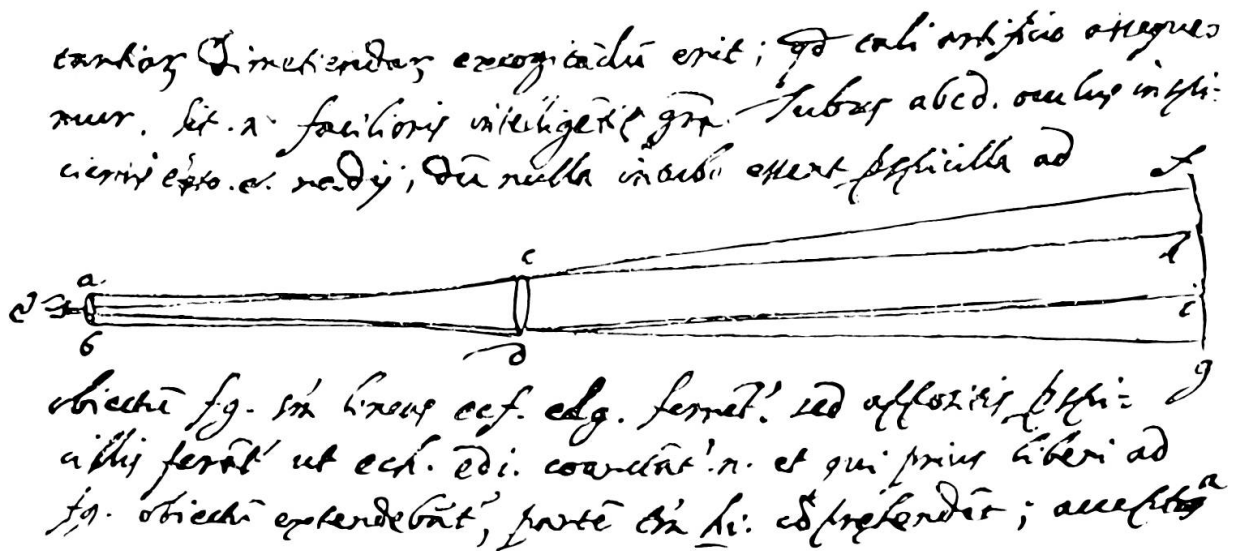 tantiaꝝ Dimetiendaꝝ excogitādū erit; qd tali artificio asseque=
mur. sit .n. facilioris intelligētię grā. Tubus abcd. oculus inspi=
cientis esto .e. radij, dū nulla in tubo essent pspicilla ad
f
c
h
a
e
i
b
d
g
obiectū f.g. sm lineas ecf. edg. ferrēt'. sed appositis pspi=
cillis ferāt' ut ech. edi. coarctāt'.n. et qui prius liberi ad
fg. obiectū extendebāt', partē tm hi. cōprehendēt; accepta